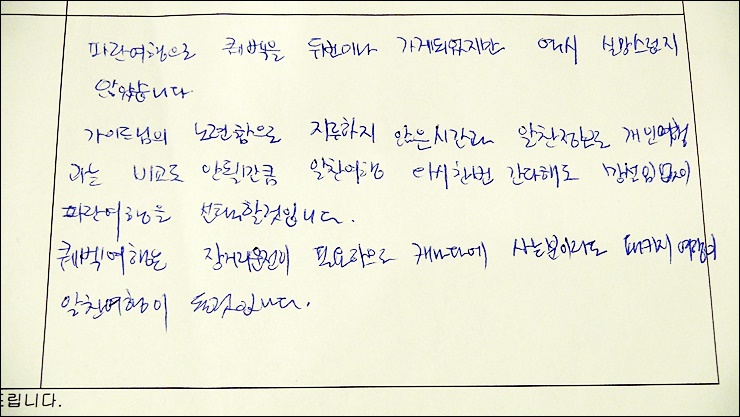 파란여행으로 퀘벡을 두번이나 가게되었지만 역시 실망스럽지
않았습니다.
가이드님의 노련함으로 지루하지 않은시간과 알찬정보로 개인여행
과는 비교도 안될만큼 알찬여행 다시한번 간다해도 망설임없이
파란여행을 선택할것입니다.
퀘벡여행은 장거리운전이 필요하므로 캐나다에 사는분이라도 패키지 여행이
알찬여행이 될것입니다.
드립니다.